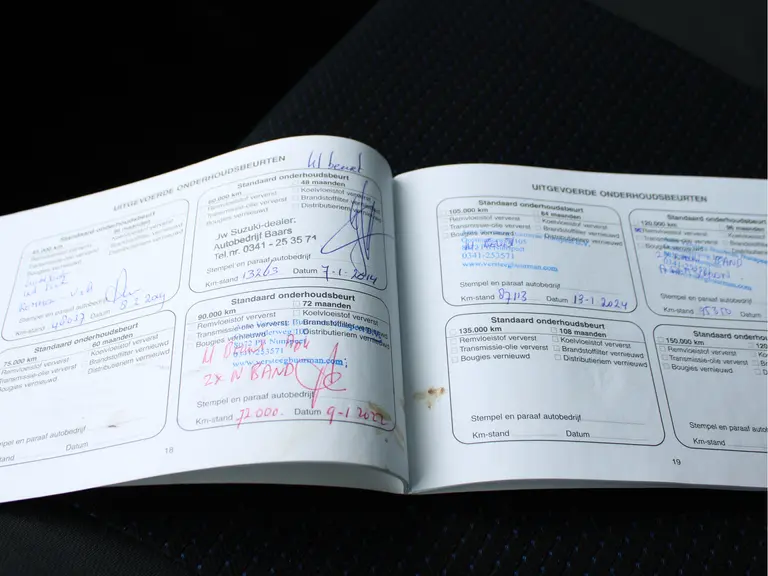 UITGEVOERDE ONDERHOUDSBEURTEN
Standaard onderhoudsbeurt
36 maanden
Remvloeistof ververst
Koelvloeistof ververst
Transmissie-olie ververst
Brandstoffilter vernieuwd
Bougies vernieuwd
Distributieriem vernieuwd
Stempel en paraaf autobedrijf
Km-stand
Datum
Standaard onderhoudsbeurt
48 maanden
Remvloeistof ververst
Koelvloeistof ververst
Transmissie-olie ververst
Brandstoffilter vernieuwd
Bougies vernieuwd
Distributieriem vernieuwd
Uw Suzuki-dealer:
Autobedrijf Baars
Tel.nr. 0341 - 25 35 71
Stempel en paraaf autobedrijf
Km-stand 13263 Datum 7-1-2014
75.000 km
Standaard onderhoudsbeurt
60 maanden
Remvloeistof ververst
Koelvloeistof ververst
Transmissie-olie ververst
Brandstoffilter vernieuwd
Bougies vernieuwd
Distributieriem vernieuwd
Stempel en paraaf autobedrijf
Km-stand
Datum
Standaard onderhoudsbeurt
90.000 km
72 maanden
Remvloeistof ververst
Koelvloeistof ververst
Transmissie-olie ververst
Brandstoffilter vernieuwd
Bougies vernieuwd
Distributieriem vernieuwd
0341-253571
www.versteeghuurman.com
2x N BAND
Stempel en paraaf autobedrijf
Km-stand 72000. Datum 9-1-2022
18
UITGEVOERDE ONDERHOUDSBEURTEN
Standaard onderhoudsbeurt
105.000 km
84 maanden
Remvloeistof ververst
Koelvloeistof ververst
Transmissie-olie ververst
Brandstoffilter vernieuwd
Bougies vernieuwd
Distributieriem vernieuwd
0341-253571
www.versteeghuurman.com
Stempel en paraaf autobedrijf
Km-stand 87113 Datum 13-1-2024
Standaard onderhoudsbeurt
120.000 km
96 maanden
Remvloeistof ververst
Transmissie-olie ververst
Bougies vernieuwd
BAND
Stempel en paraaf autobedrijf
Km-stand 95350
Standaard onderhoudsbeurt
135.000 km
108 maanden
Remvloeistof ververst
Koelvloeistof ververst
Transmissie-olie ververst
Brandstoffilter vernieuwd
Bougies vernieuwd
Distributieriem vernieuwd
Stempel en paraaf autobedrijf
Km-stand
Datum
Standaard onderhoudsbeurt
150.000 km
120
Remvloeistof ververst
Transmissie-olie ververst
Bougies vernieuwd
Stempel en paraaf autobedrijf
Km-stand
19